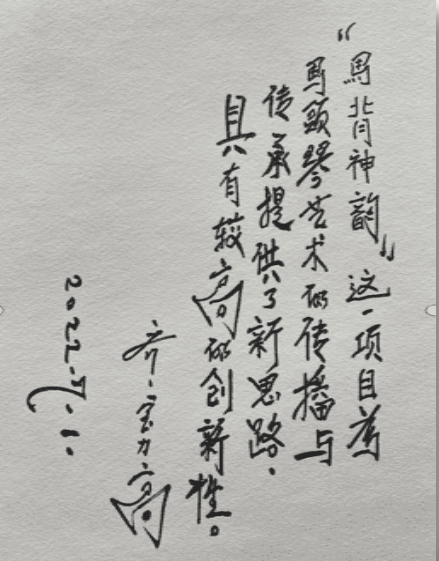 “馬背神韵”这一项目为
馬頭琴艺术的传播与
传承提供了新思路。
具有较高的创新性。
齐·宝力高
2022.7.1.